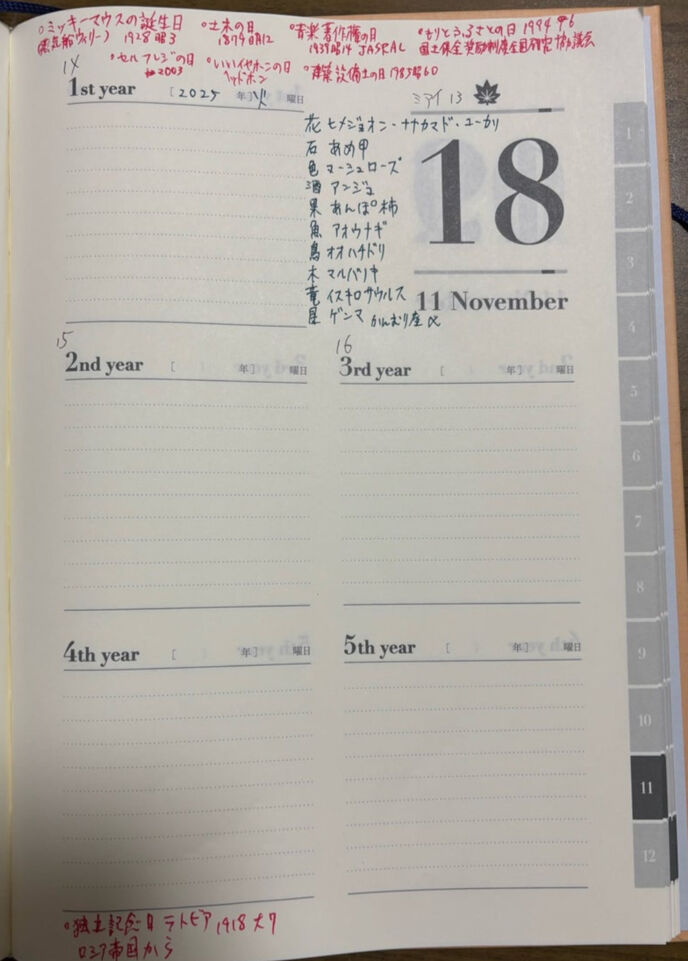 ○ミッキーマウスの誕生日 ○土木の日 ○音楽著作権の日 ○もりとふるさとの日 1994 平6
(蒸気船ウィリー) 1928 昭3 1879 明12 1939 昭14 JASRAC 国土保全奨励制度全国研究協議会
○セルフレジの日 ○いいイヤホンの日 ○建築設備士の日 1985 昭60
2003 ヘッドホン
14 ミアイ 13
1st year [2025 年] 火 曜日
花 ヒメジョオン・ササカマド・ユーカリ
石 あめ甲
色 マーシュローズ
酒 アンジュ
果 あんぽ柿
魚 アオウナギ
鳥 オオハチドリ
木 マルバノキ
竜 イスキロサウルス
星 ゲンマ かんむり座α
18
11 November
15 16
2nd year [ 年] 曜日 3rd year [ 年] 曜日
4th year [ 年] 曜日 5th year [ 年] 曜日
1
2
3
4
5
6
7
8
9
10
11
12
○独立記念日 ラトビア 1918 大7
ロシア帝国から